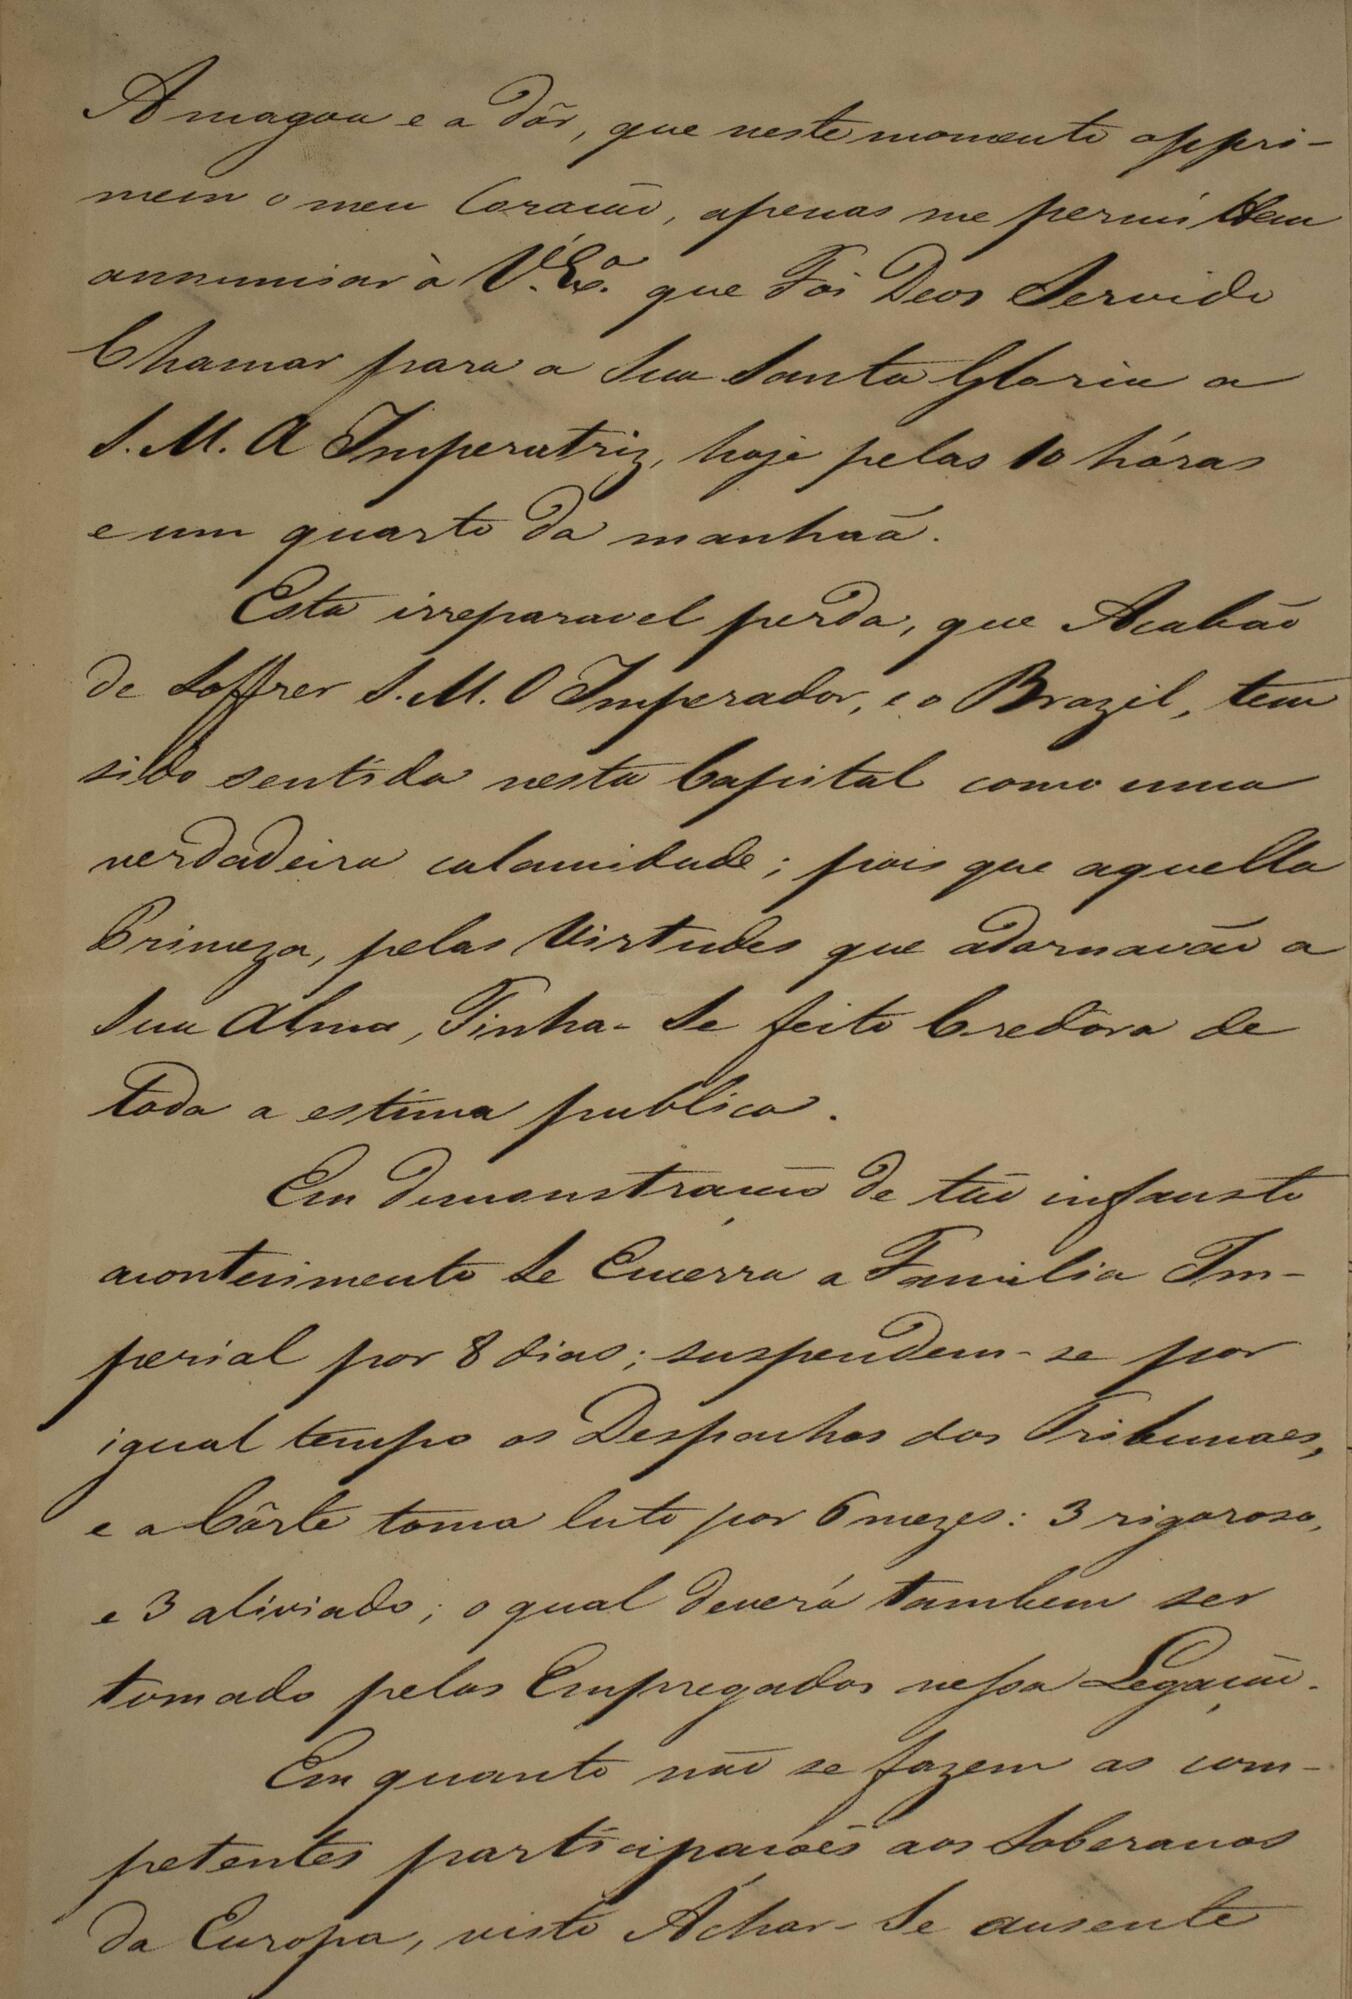 A magoa e a dôr, que neste momento oppri-
mem o meu Coração, apenas me permittem
annunciar à V. Ex.ª que Foi Deos Servido
Chamar para a Sua Santa Gloria a
S. M. A Imperatriz, hoje pelas 10 hóras
e um quarto da manhaã.
Esta irreparavel perda, que Acabão
de Soffrer S. M. O Imperador, e o Brazil, tem
sido sentida nesta Capital como uma
verdadeira calamidade; pois que aquella
Princeza, pelas Virtudes que adornavão a
Sua Alma, Tinha-Se feito Credôra de
toda a estima publica.
Em demonstração de tão infausto
acontecimento Se Encerra a Familia Im-
perial por 8 dias; suspendem-se por
igual tempo os Despachos dos Tribunaes,
e a Côrte toma luto por 6 mezes: 3 rigoroso,
e 3 aliviado; o qual deverá tambem ser
tomado pelos Empregados nessa Legação.
Em quanto não se fazem as com-
petentes participaçoẽs aos Soberanos
da Europa, visto Achar-Se ausente